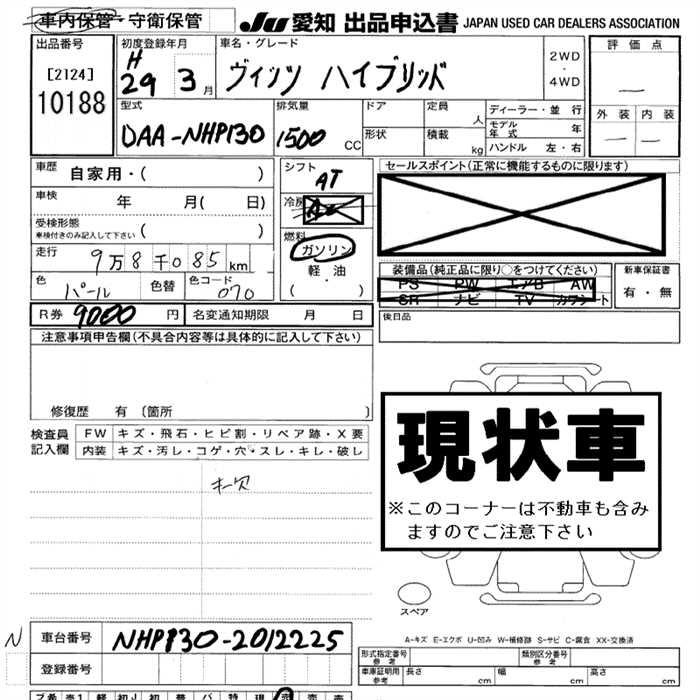 車内保管・守衛保管
JU 愛知 出品申込書 JAPAN USED CAR DEALERS ASSOCIATION
出品番号
[2124]
10188
初度登録年月
H
29 3月
車名・グレード
ヴィッツ ハイブリッド
2WD
・
4WD
評価点
—
外装 内装
— —
型式
DAA-NHP130
排気量
1500 CC
ドア
形状
定員 人
積載 kg
ディーラー・並行
モデル年式 年
ハンドル 左・右
車歴
自家用・( )
車検 年 月( 日)
受検形態
車検付きのみ記入して下さい ( )
走行
9万8千085km
色
パール
色替
色コード
070
シフト
AT
冷房
燃料
ガソリン
軽油
( ・ )
セールスポイント(正常に機能するものに限ります)
装備品(純正品に限り○をつけてください)
PS PW エアB AW
SR ナビ TV カワシート
新車保証書
有・無
R券 9000 円 名変通知期限 月 日
後日品
注意事項申告欄(不具合内容等は具体的に記入して下さい)
修復歴 有〔箇所 〕
検査員
記入欄
FW キズ・飛石・ヒビ割・リペア跡・X要
内装 キズ・汚レ・コゲ・穴・スレ・キレ・破レ
キー欠
現状車
※このコーナーは不動車も含み
ますのでご注意下さい
スペア
A-キズ E-エクボ U-凹み W-補修跡 S-サビ C-腐食 XX-交換済
N
車台番号 NHP130-2012225
登録番号
形式指定番号
参考
類別区分番号
参考
車庫証明用
参考
長さ cm 幅 cm 高さ cm